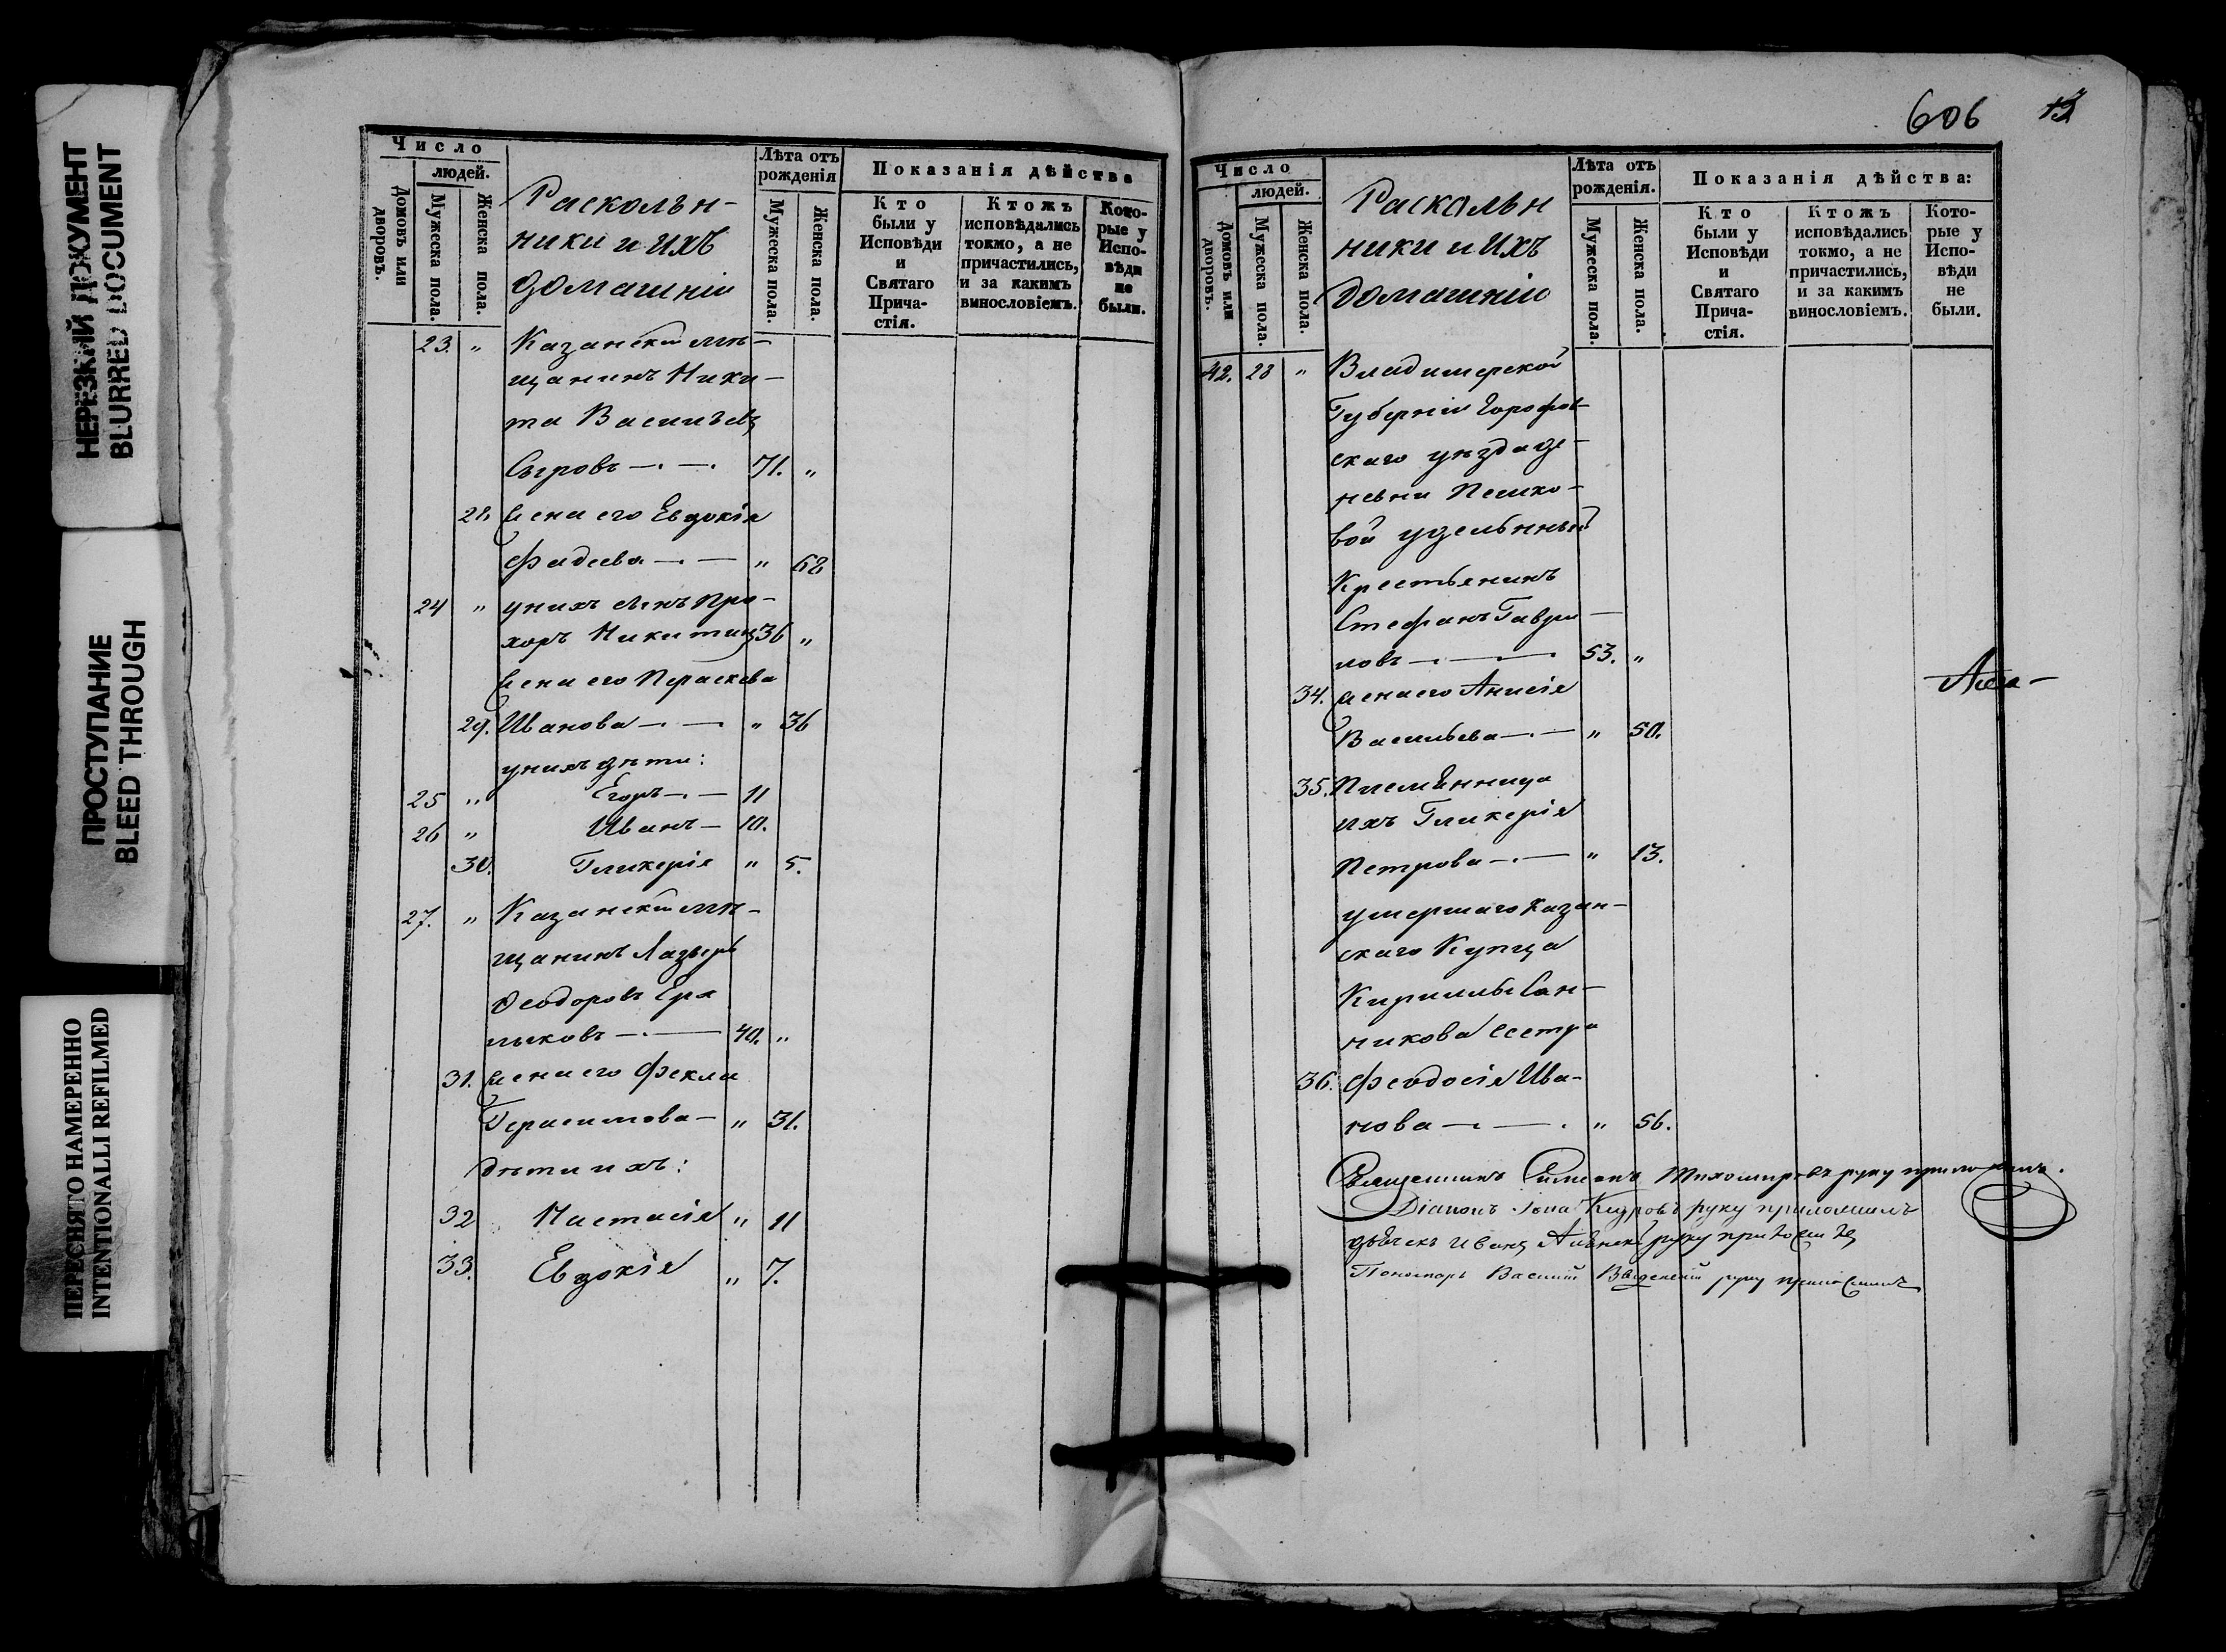 НЕРЕЗКИЙ ДОКУМЕНТ
BLURRED DOCUMENT
ПРОСТУПАНИЕ
BLEED THROUGH
ПЕРЕСНЯТО НАМЕРЕННО
INTENTIONALLI REFILMED
Число
людей.
Домовъ или дворовъ.
Мужеска пола.
Женска пола.
Раскольн-
ники и ихъ
домашніи
Лѣта отъ рожденія
Мужеска пола.
Женска пола.
Показанія дѣйства
Кто были у Исповѣди и Святаго Прича-стія.
Ктожъ исповѣдались токмо, а не причастились, и за какимъ винословіемъ.
Кото-рые у Испо-вѣди не были.
23. " Казанскій мѣ-
щанинъ Ники-
та Васильевъ
Сыровъ 71. "
28. Жена его Евдокія
Фадеева " 68
24 " у нихъ сынъ Про-
хоръ Никитинъ 36 "
Жена его Параскева
29. Иванова " 36
у нихъ дѣти:
25 " Егоръ 11
26 " Иванъ 10.
30. Гликерія " 5.
27. " Казанскій мѣ-
щанинъ Лазарь
Феодоровъ Ера
лыковъ 40. "
31. Жена его Фекла
Герасимова " 31.
дѣти ихъ:
32 Настасія " 11
33. Евдокія " 7.
606 13
Число
людей.
Домовъ или дворовъ.
Мужеска пола.
Женска пола.
Раскольн
ники и ихъ
домашніи
Лѣта отъ рожденія.
Мужеска пола.
Женска пола.
Показанія дѣйства:
Кто были у Исповѣди и Святаго Прича-стія.
Ктожъ исповѣдались токмо, а не причастились, и за какимъ винословіемъ.
Кото-рые у Испо-вѣди не были.
42. 28 " Владимерской
Губерніи Горохов-
скаго уѣзда де-
ревни
вой удельнный
Крестьянинъ
Стефанъ Гаври-
ловъ 53. "
34. Жена его Анисія
Васильева " 50.
35. Племянница
ихъ Гликерія
Петрова " 13.
умершаго Казан-
скаго Купца
Кириллы Сан-
никова сестра
36. Феодосія Ива-
нова " 56.
Священникъ Симеонъ Тихомировъ руку приложилъ.
Діаконъ Іона Кедровъ руку приложилъ
дьячекъ Иванъ руку приложилъ
Пономарь Василій Введенскій руку приложилъ